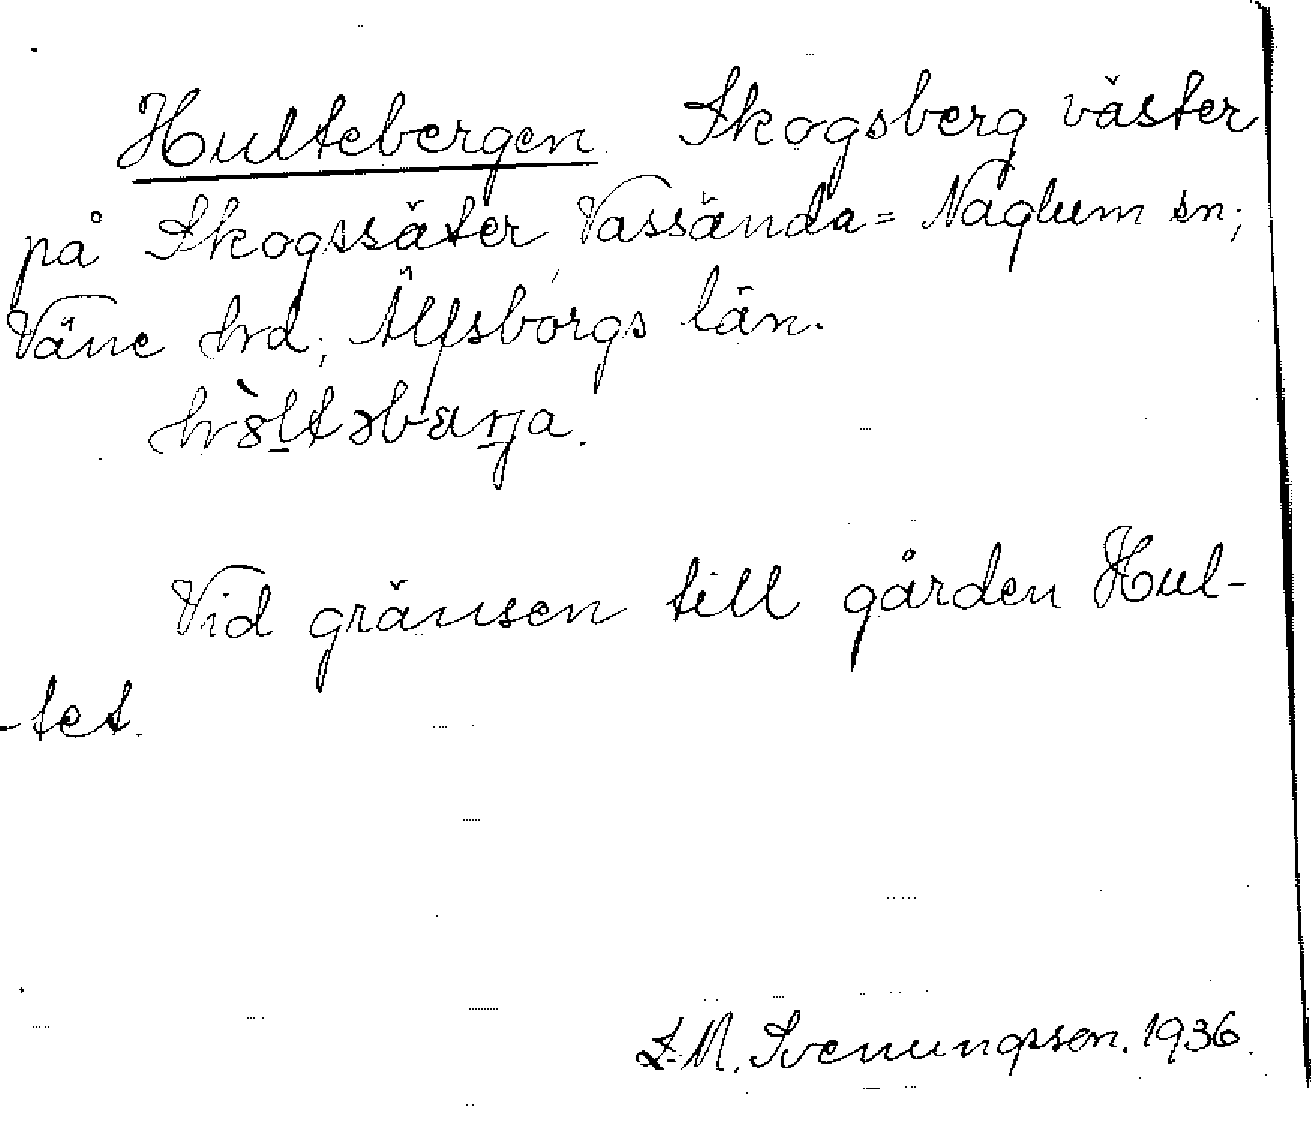 Hultebergen. Skogsberg väster
på Skogssäter Vassända=Naglum sn;
Väne hd; Älfsborgs län.
Vid gränsen till gården Hul-
-tet.
L.M. Svenungsson. 1936.